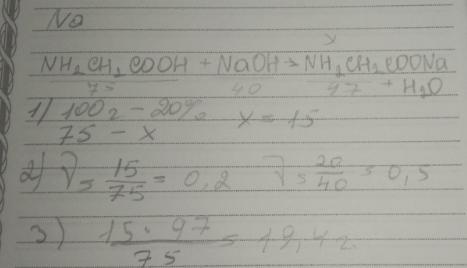 No
y
NH₂CH₂COOH + NaOH → NH₂CH₂COONa
75 40 97 + H₂O
1) 100г - 20%
75 - x x = 15
2) ν = 15/75 = 0,2 ν = 20/40 = 0,5
3) 15 · 97 / 75 = 19,4 г.